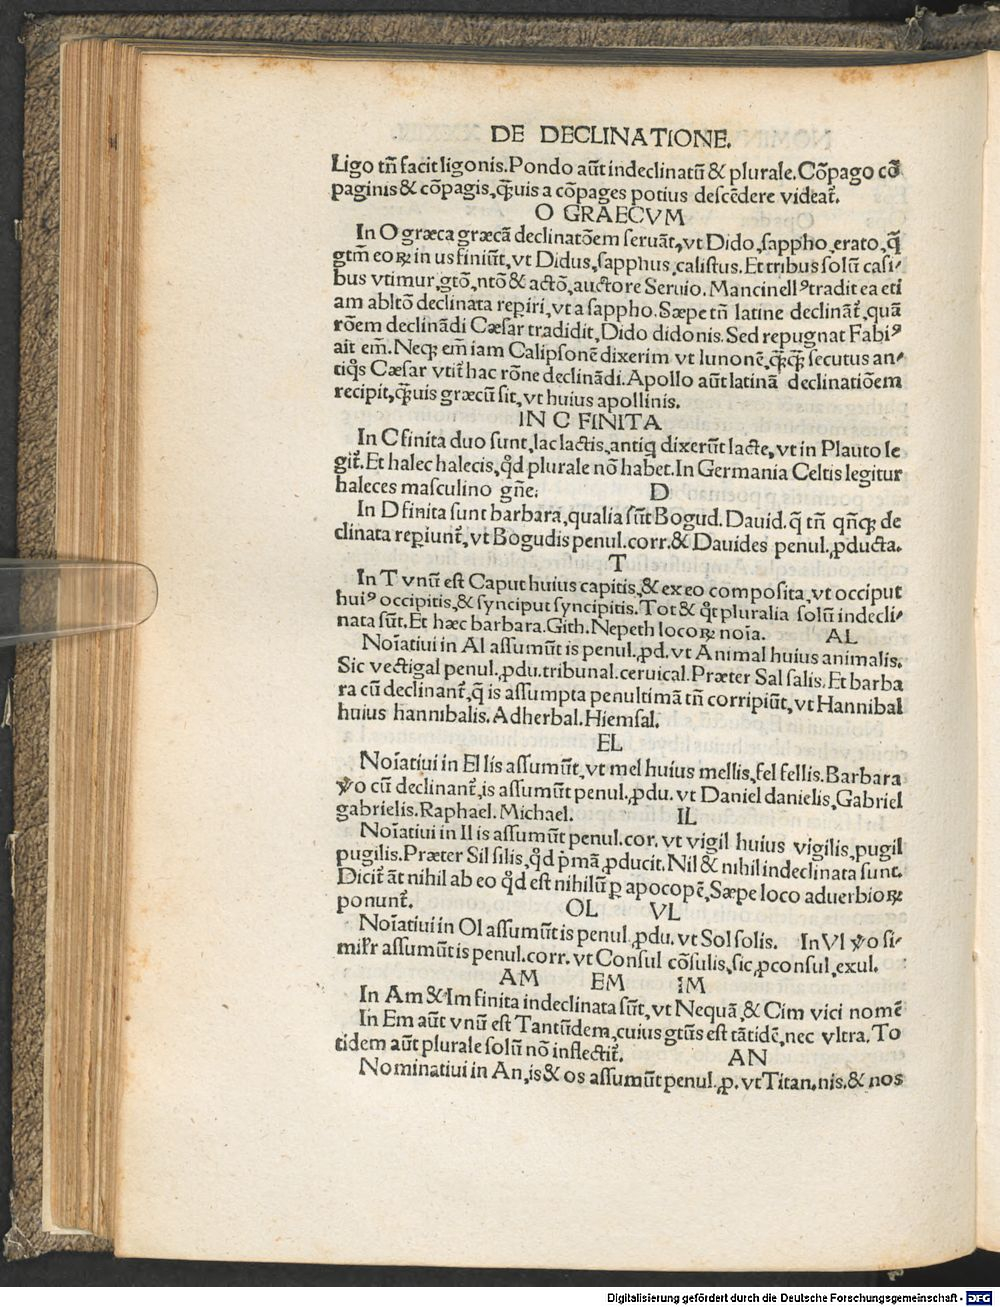 DE DECLINATIONE.
Ligo tñ facit ligonis. Pondo aũt indeclinatũ & plurale. Cõpago cõ
paginis & cõpagis, q̃uis a cõpages potius descẽdere videat᷑.
O GRAECVM
In O græca græcã declinatõem seruãt, vt Dido, sappho, erato, q̃
gtm̃ eoꝝ in us finiũt, vt Didus, sapphus, calistus. Et tribus solũ casi⸗
bus vtimur, gtõ, ntõ & actõ, auctore Seruio. Mancinellꝰ tradit ea eti
am abltõ declinata reꝑiri, vt a sappho. Sæpe tñ latine declinãt᷑, quã
rõem declinãdi Cæsar tradidit, Dido didonis. Sed repugnat Fabiꝰ
ait em̃. Neqꝫ em̃ iam Calipsonẽ dixerim vt Iunonẽ, q̃q̃ secutus an⸗
tiq̊s Cæsar vtit᷑ hac rõne declinãdi. Apollo aũt latinã declinatiõem
recipit, q̃uis græcũ sit, vt huius apollinis.
IN C FINITA
In C finita duo sunt, lac lactis, antiq dixerũt lacte, vt in Plauto le
git᷑. Et halec halecis, q̊d plurale nõ habet. In Germania Celtis legitur
haleces masculino gñe. D
In D finita sunt barbara, qualia sũt Bogud. Dauid. q̃ tñ qñqꝫ de
clinata reꝑiunt᷑, vt Bogudis penul. corr. & Dauides penul. ꝓducta.
T
In T vnũ est Caput huius capitis, & ex eo composita, vt occiput
huiꝰ occipitis, & synciput syncipitis. Tot & q̊t pluralia solũ indecli⸗
nata sũt. Et hæc barbara. Gith. Nepeth locoꝝ noĩa. AL
Noĩatiui in Al assumũt is penul. ꝓd. vt Animal huius animalis.
Sic vectigal penul. ꝓdu. tribunal. ceruical. Præter Sal salis. Et barba
ra cũ declinant᷑, q̃ is assumpta penultimã tñ corripiũt, vt Hannibal
huius hannibalis. Adherbal. Hiemsal.
EL
Noĩatiui in El lis assumũt, vt mel huius mellis, fel fellis. Barbara
v̊o cũ declinant᷑, is assumũt penul. ꝓdu. vt Daniel danielis, Gabriel
gabrielis. Raphael. Michael. IL
Noĩatiui in Il is assumũt penul. cor. vt vigil huius vigilis, pugil
pugilis. Præter Sil silis, q̊d p̃mã ꝓducit. Nil & nihil indeclinata sunt.
Dicit᷑ ãt nihil ab eo q̊d est nihilũ ꝑ apocopẽ, Sæpe loco aduerbioꝝ
ponunt᷑. OL VL
Noĩatiui in Ol assumũt is penul. ꝓdu. vt Sol solis. In Vl v̊o si⸗
milr̃ assumũt is penul. corr. vt Consul cõsulis, sic, ꝓconsul, exul.
AM EM IM
In Am & Im finita indeclinata sũt, vt Nequã, & Cim vici nomẽ
In Em aũt vnũ est Tantũdem, cuius gtũs est tãtidẽ, nec vltra. To
tidem aũt plurale solũ nõ inflectit᷑. AN
Nominatiui in An, is & os assumũt penul. ꝓ. vt Titan. nis. & nos
Digitalisierung gefördert durch die Deutsche Forschungsgemeinschaft - DFG